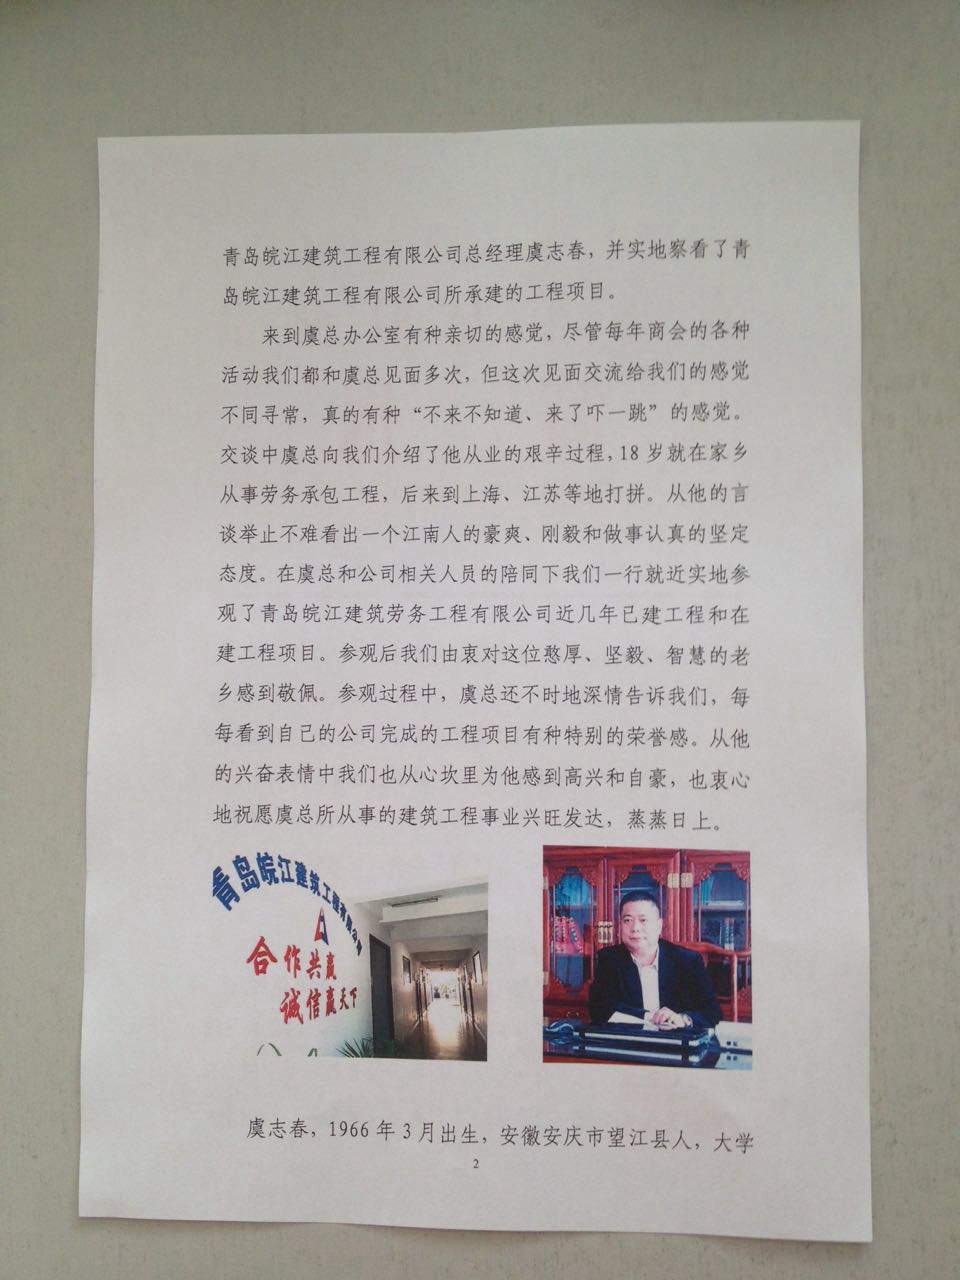 青岛皖江建筑工程有限公司总经理虞志春，并实地察看了青
岛皖江建筑工程有限公司所承建的工程项目。
来到虞总办公室有种亲切的感觉，尽管每年商会的各种
活动我们都和虞总见面多次，但这次见面交流给我们的感觉
不同寻常，真的有种“不来不知道、来了吓一跳”的感觉。
交谈中虞总向我们介绍了他从业的艰辛过程，18 岁就在家乡
从事劳务承包工程，后来到上海、江苏等地打拼。从他的言
谈举止不难看出一个江南人的豪爽、刚毅和做事认真的坚定
态度。在虞总和公司相关人员的陪同下我们一行就近实地参
观了青岛皖江建筑劳务工程有限公司近几年已建工程和在
建工程项目。参观后我们由衷对这位憨厚、坚毅、智慧的老
乡感到敬佩。参观过程中，虞总还不时地深情告诉我们，每
每看到自己的公司完成的工程项目有种特别的荣誉感。从他
的兴奋表情中我们也从心坎里为他感到高兴和自豪，也衷心
地祝愿虞总所从事的建筑工程事业兴旺发达，蒸蒸日上。
青岛皖江建筑工程有限公司
合作共赢
诚信赢天下
虞志春，1966 年 3 月出生，安徽安庆市望江县人，大学
2